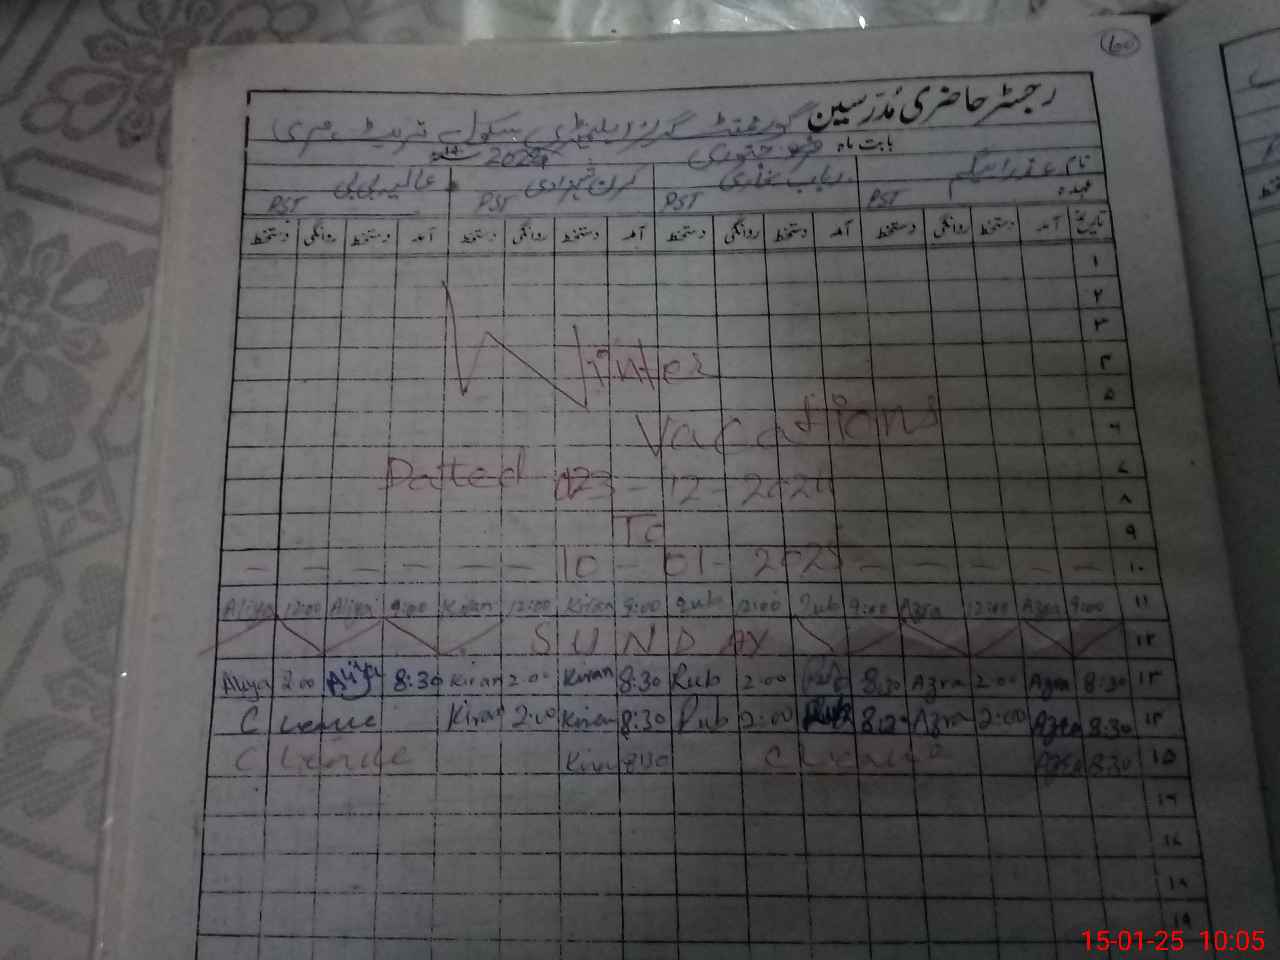 100
رجسٹر حاضری مدرسین گورنمنٹ گرلز ایلیمنٹری سکول
بابت ماہ جنوری 2024
نام عذرا بیگم رباب بخاری کرن شہزادی عالیہ بی بی
عہدہ PST PST PST PST
تاریخ آمد دستخط روانگی دستخط آمد دستخط روانگی دستخط آمد دستخط روانگی دستخط آمد دستخط روانگی دستخط
۱
۲
۳
۴
۵
۶
۷
۸
۹
Winter
Vacations
Datted 023-12-2024
To
— — — — — — 10 - 01 - 2025 — — — — ۱۰
Aliya 12:00 Aliya 9:00 Kiran 12:00 Kiran 9:00 Rub 12:00 Rub 9:00 Azra 12:00 Azra 9:00 ۱۱
SUNDAY ۱۲
Aliya 2:00 Aliya 8:30 Kiran 2:00 Kiran 8:30 Rub 2:00 Rub 8:30 Azra 2:00 Azra 8:30 ۱۳
C Leave Kiran 2:00 Kiran 8:30 Rub 2:00 Rub Azra 2:00 Azra 8:30 ۱۴
C Leave Kiran 8:30 C Leave Azra 8:30 ۱۵
۱۶
۱۷
۱۸
۱۹
15-01-25 10:05